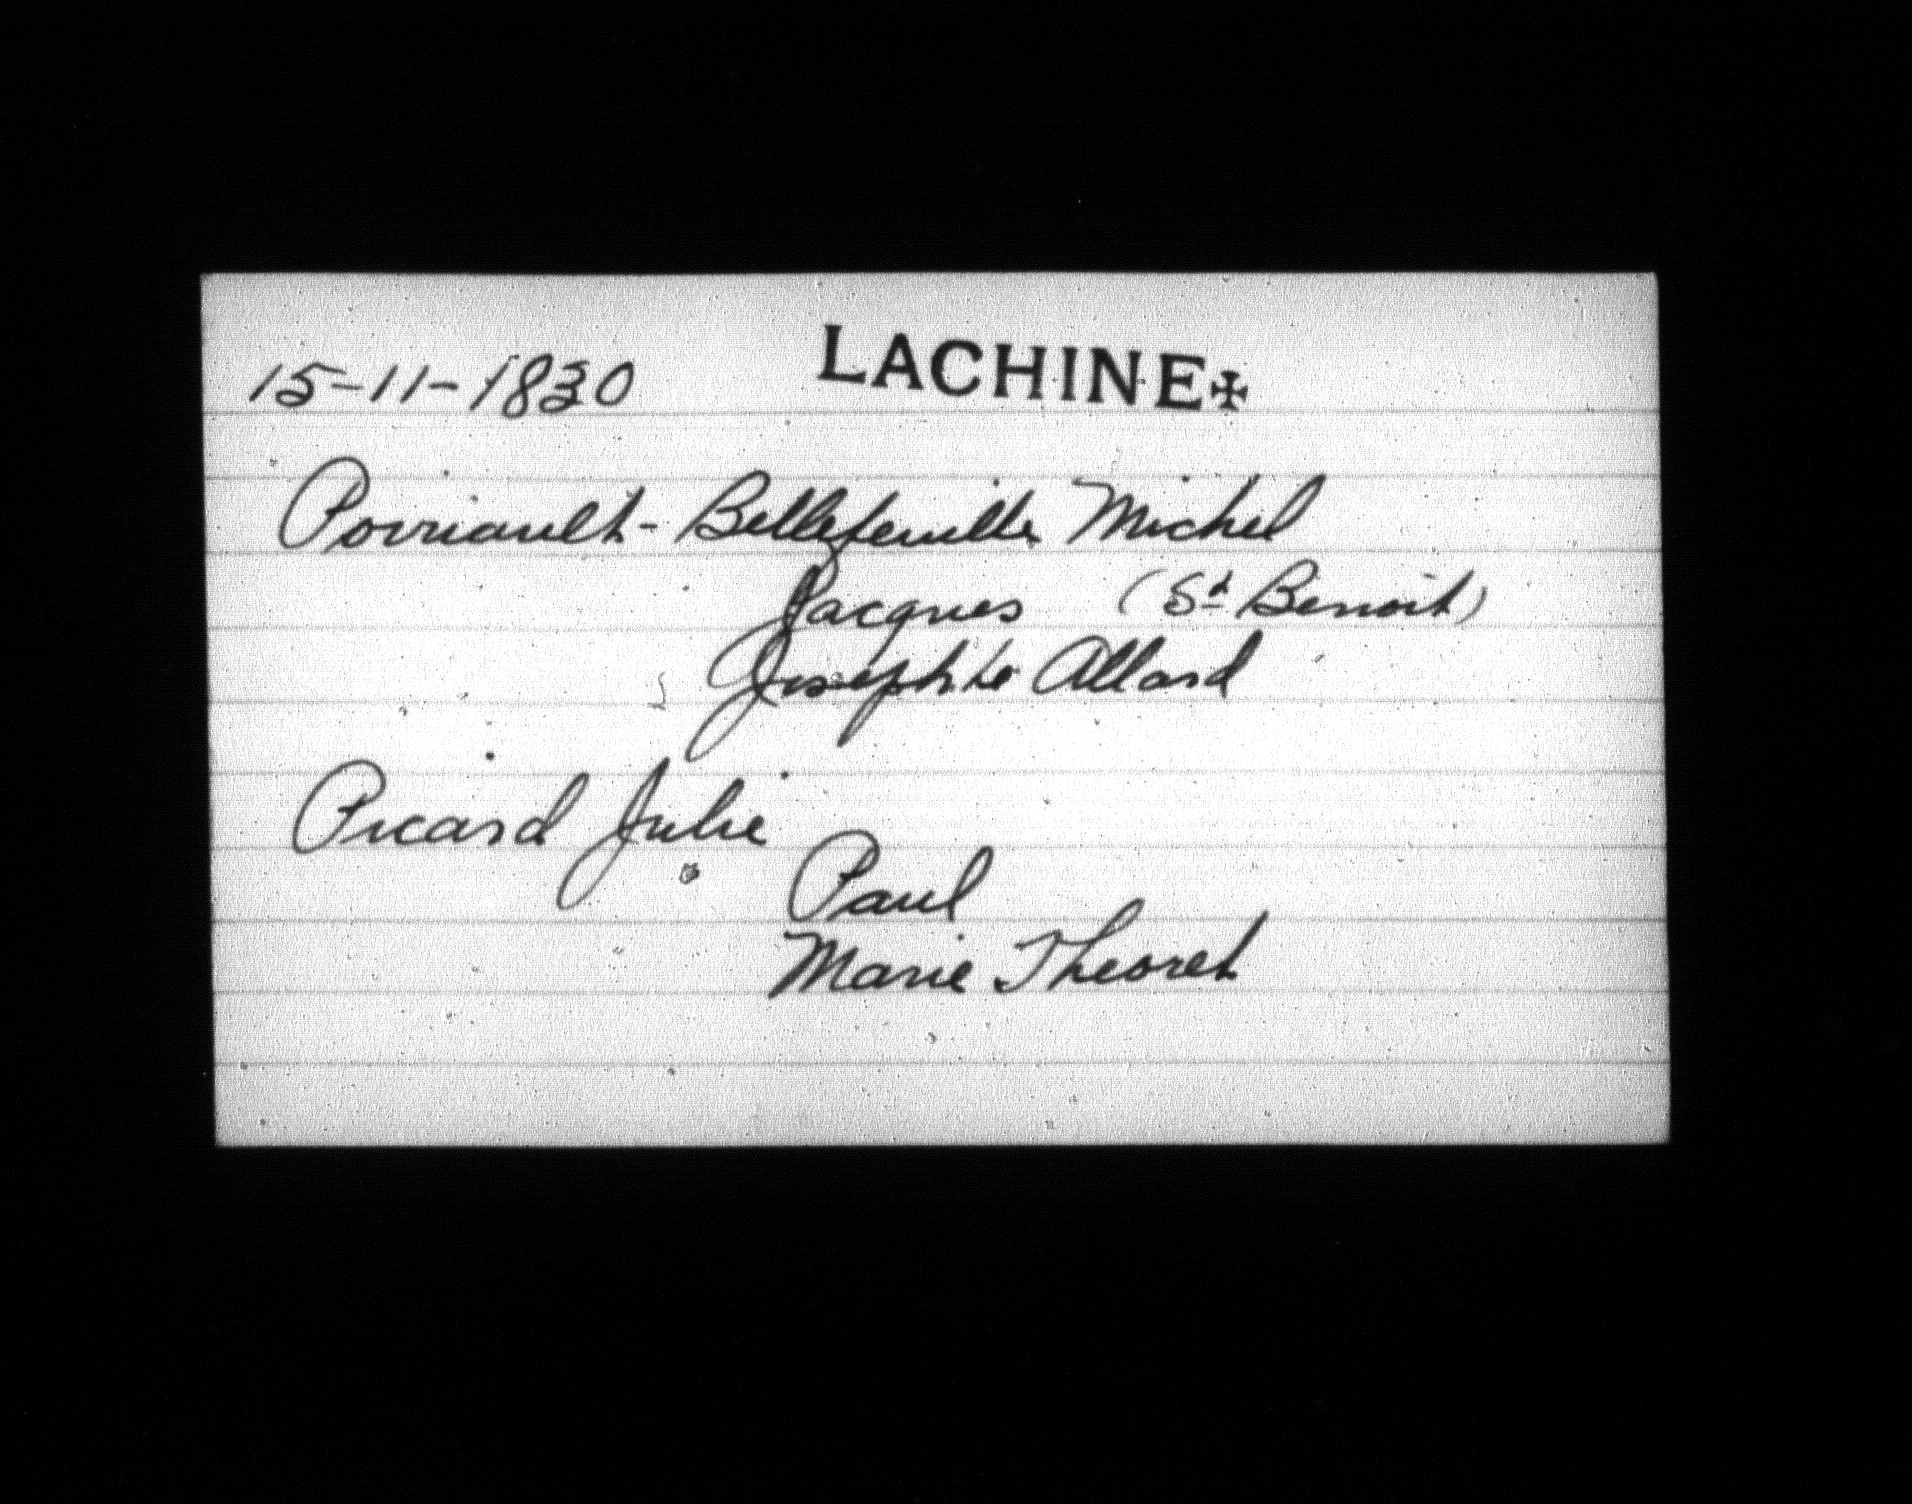 15-11-1830 LACHINE✠
Poiriault-Bellefeuille Michel
Jacques (St Benoit)
Josephte Allard
Picard Julie
Paul
Marie Theoret